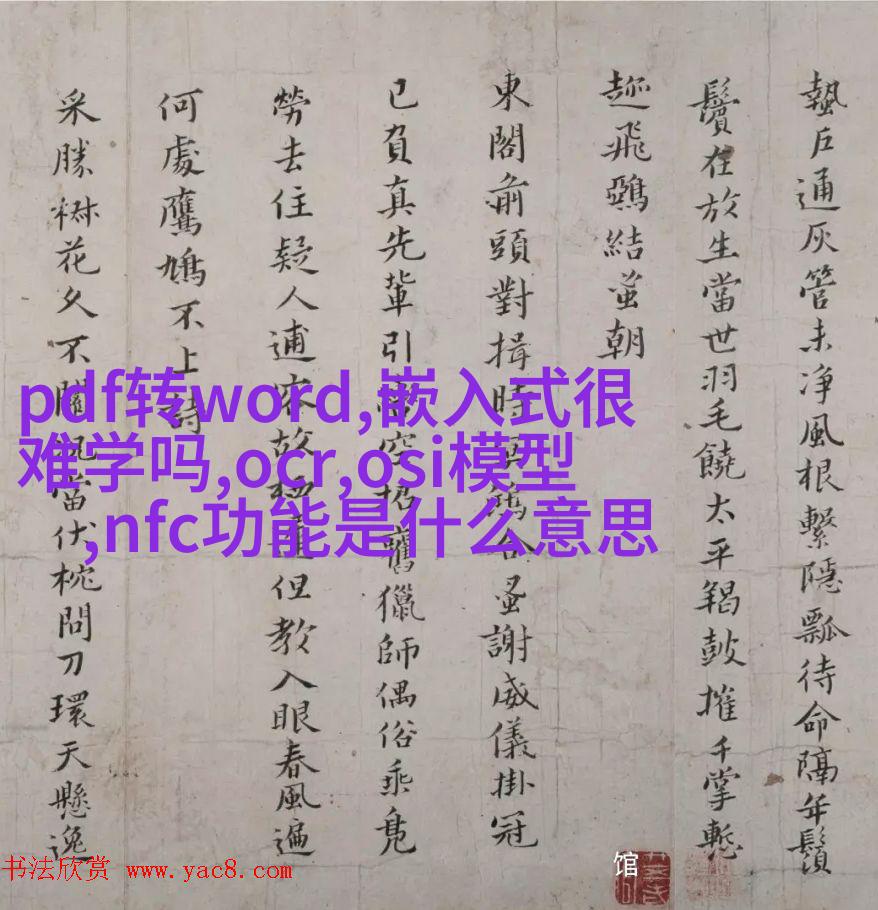 蟄戶通灰管未净風根繫隱瓢待命隔年鬚
鬢在放生當世羽毛饒太平羯鼓摧千掌慙
趂飛鶏結蚩朝
東閣前頭對揖時蚤謝威儀掛冠
已負真先輩引空招舊獵師偶俗乘凫
勞去住疑人逋客故但教入眼春風遍
何處鷹鳩不上詩
采勝桝花久不當伏枕問刀環天懸逸
pdf转word,嵌入式很
难学吗,ocr,osi模型
,nfc功能是什么意思
馆
书法欣赏 www.yac8.com